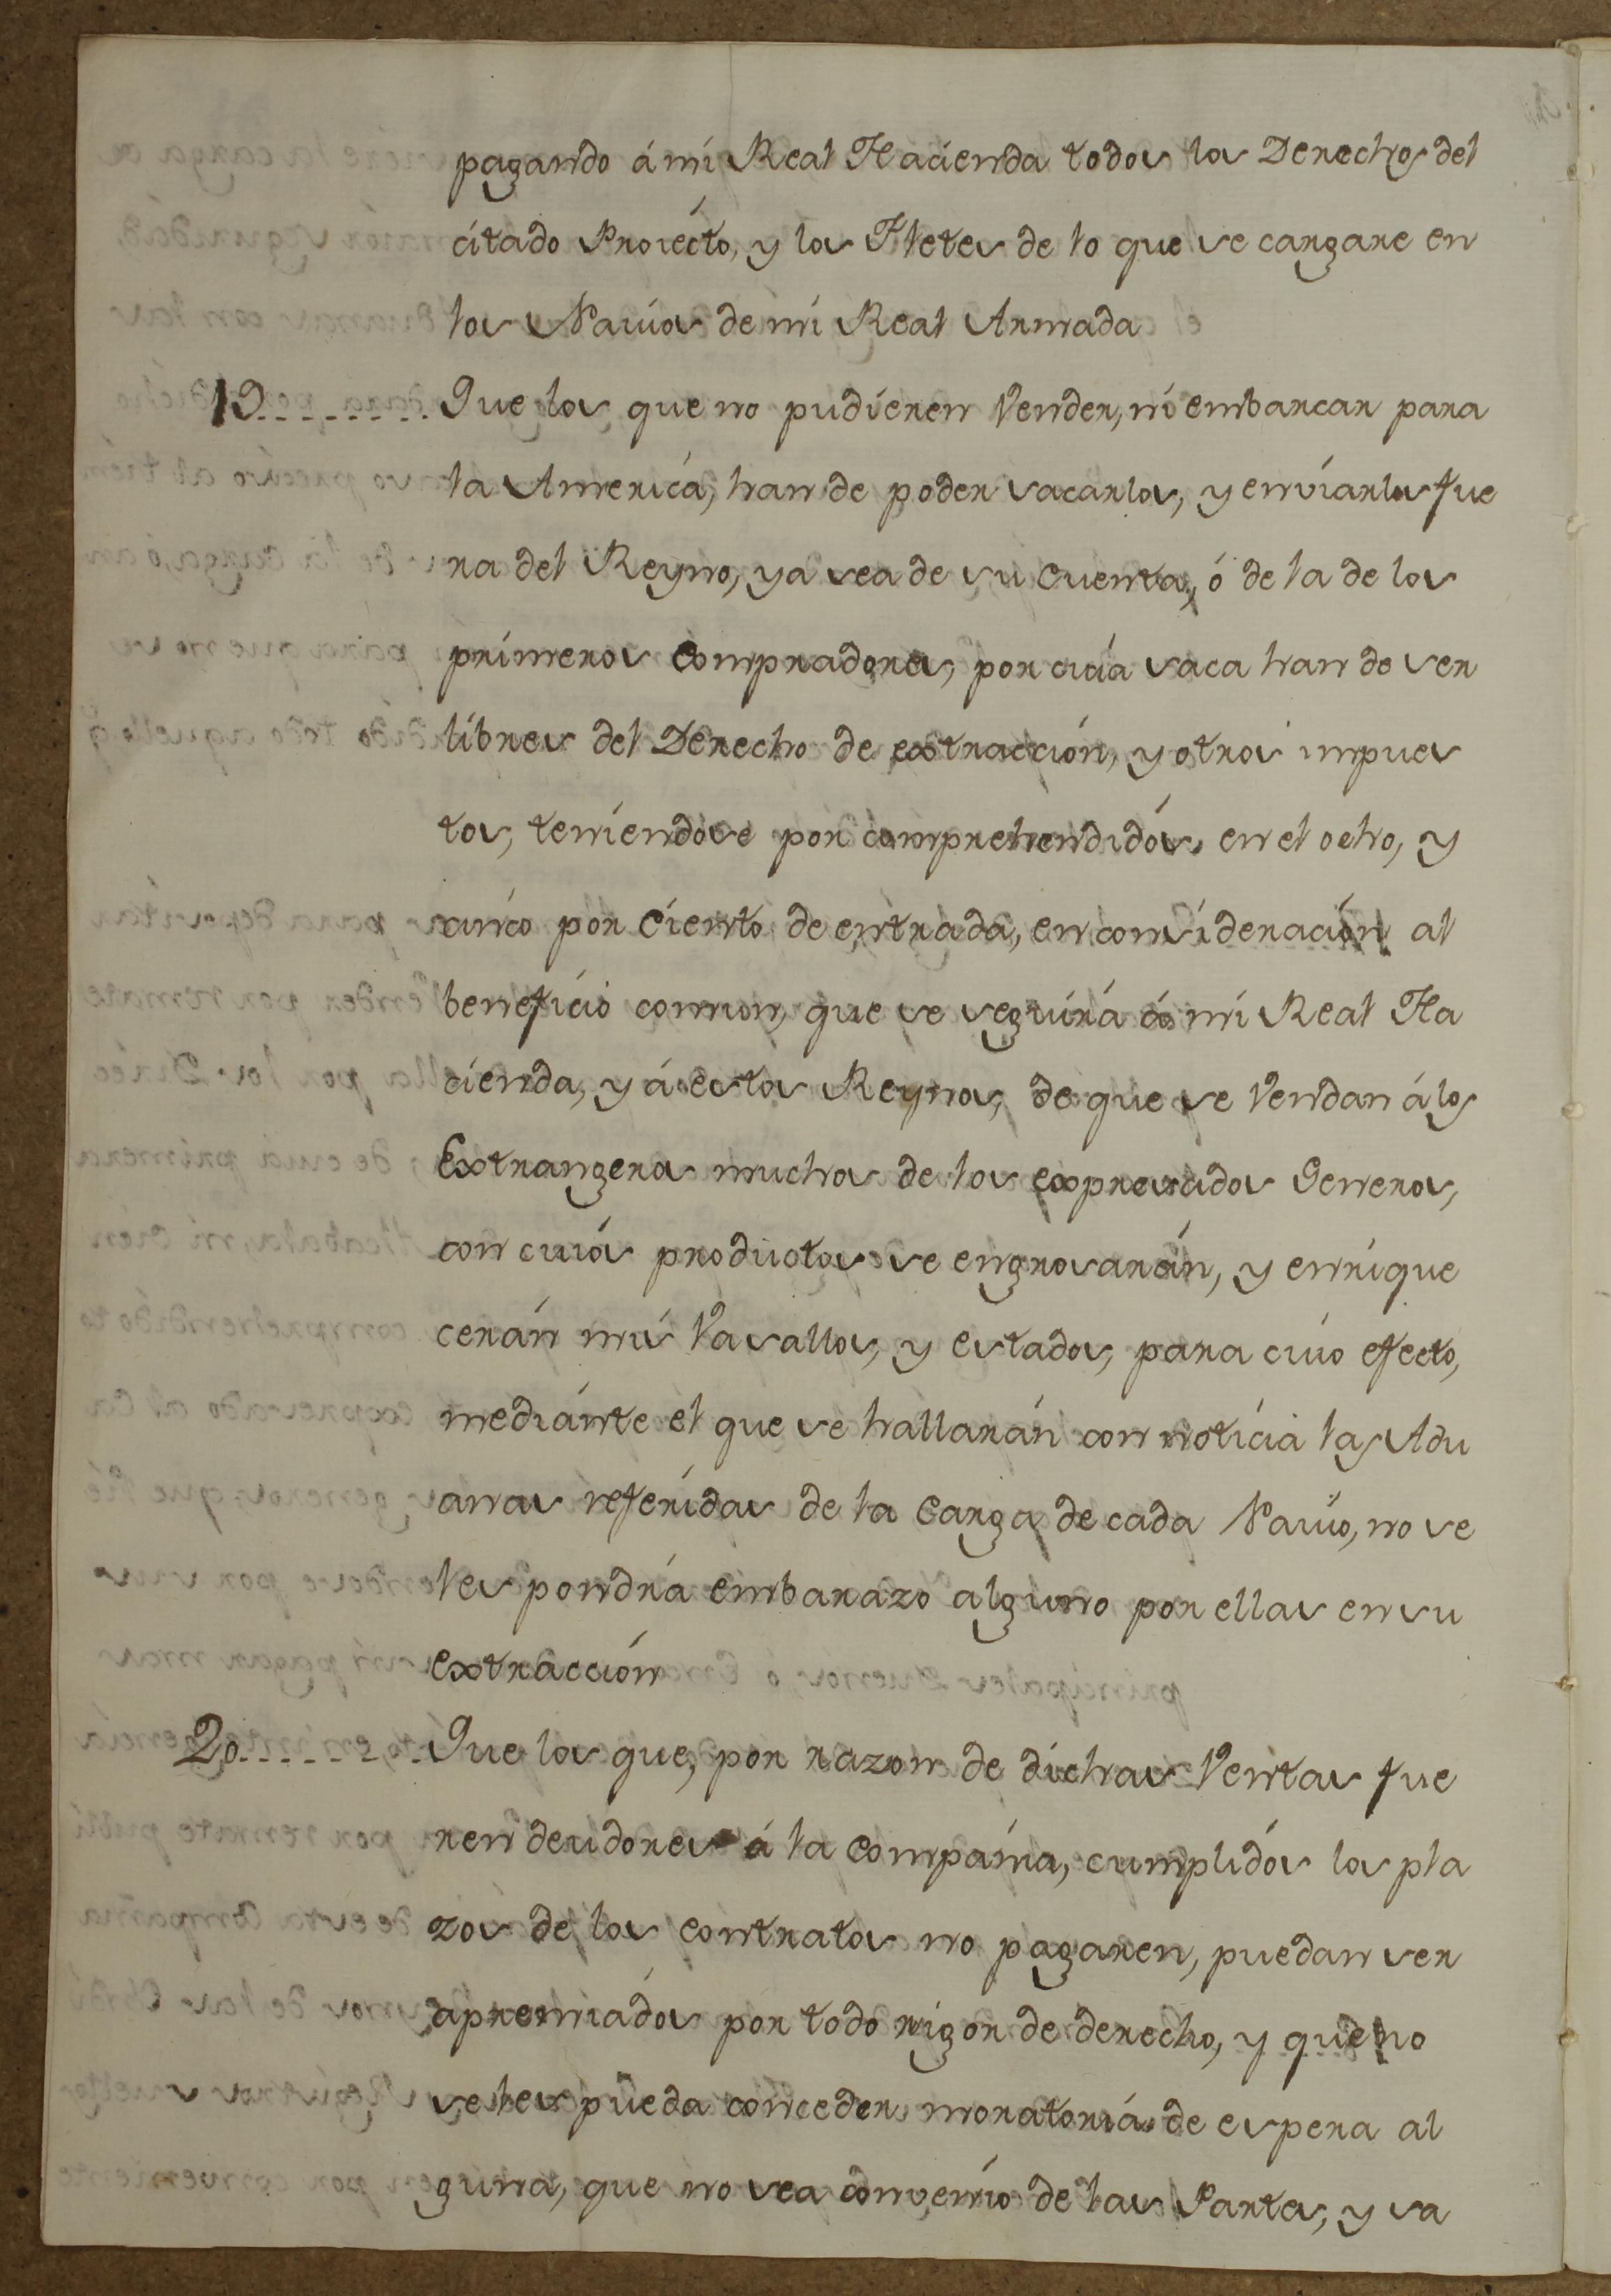 pagando á mi Real Hacienda todos los Derechos del
citado Proiecto, y los Fletes de lo que se cargare en
los Navios de mi Real Armada
19......... Que los que no pudieren Vender, ni embarcar para
la America, han de poder sacarlos, y enviarlos fue
ra del Reyno, ya sea de su cuenta, ó de la de los
primeros Compradores, por cuia saca han de ser
libres del Derecho de extraccion, y otros impues
tos, teniendose por comprehendidos, en el ocho, y
cinco por Ciento de entrada, en consideracion al
beneficio comun, que se seguirá á mi Real Ha
cienda, y á estos Reynos, de que se Vendan á los
Extrangeros muchos de los expresados Generos,
con cuios productos se engrosarán, y enrique
cerán mis Vasallos, y estados, para cuio efecto,
mediante el que se hallarán con noticia las Adu
anas referidas de la Carga de cada Navio, no se
les pondrá embarazo alguno por ellas en su
extraccion
20......... Que los que, por razon de dichas Ventas fue
ren deudores á la Compañia, cumplidos los pla
zos de los contratos no pagaren, puedan ser
apremiados por todo rigor de derecho, y que no
se les pueda conceder moratoria de espera al
guna, que no sea convenio de las Partes, y sa